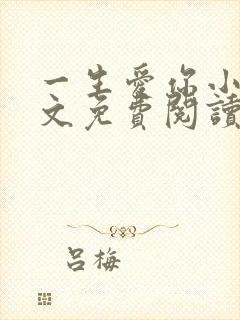 一生愛你小
文免費閱讀
呂梅